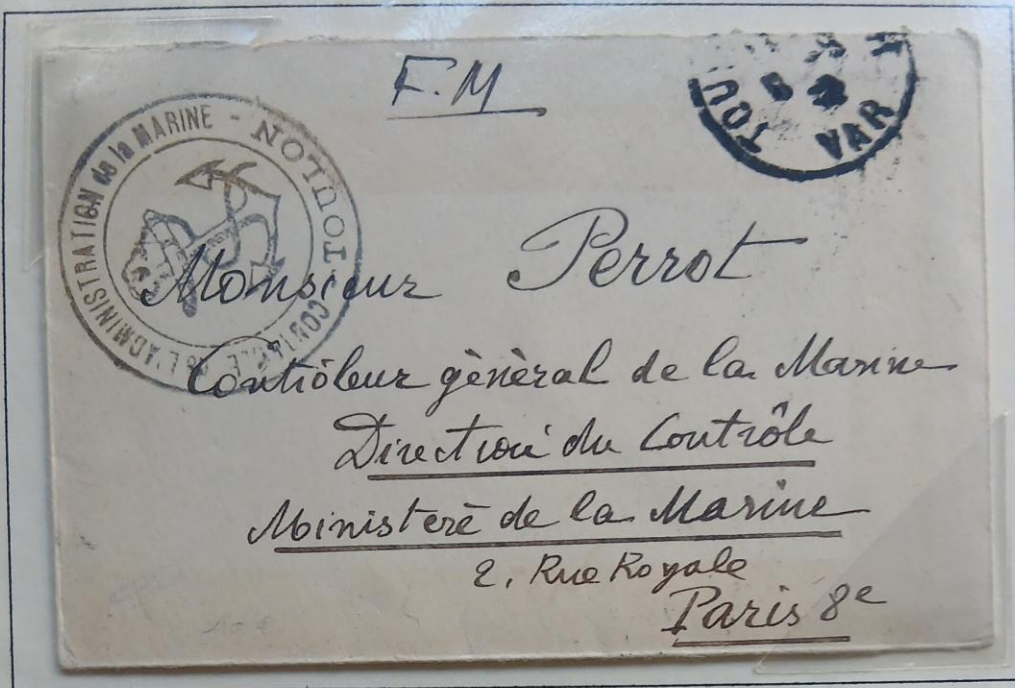 F.M
CONTROLE de L'ADMINISTRATION de la MARINE - TOULON
TOU
VAR
Monsieur Perrot
Contrôleur général de la Marine
Direction du Contrôle
Ministère de la Marine
2, Rue Royale
Paris 8e